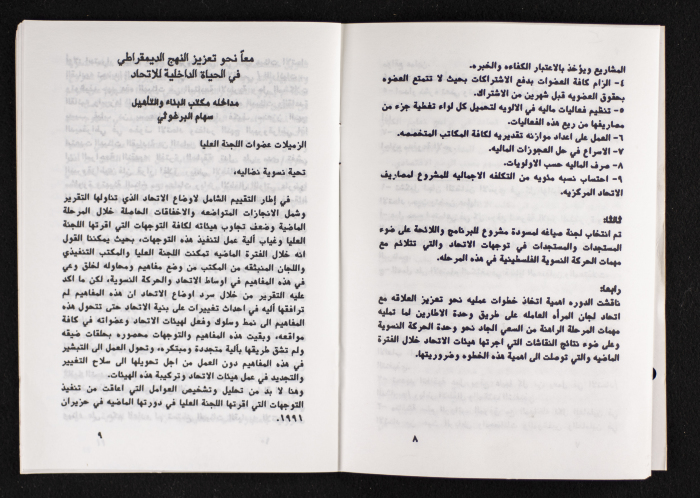 المشاريع ويؤخذ بالاعتبار الكفاءه والخبره.
٤- الزام كافة العضوات بدفع الاشتراكات بحيث لا تتمتع العضوه
بحقوق العضويه قبل شهرين من الاشتراك.
٥- تنظيم فعاليات ماليه في الالويه لتحميل كل لواء تغطية جزء من
مصاريفها من ريع هذه الفعاليات.
٦- العمل على اعداد موازنه تقديريه لكافة المكاتب المتخصصه.
٧- الاسراع في حل العجوزات الماليه.
٨- صرف الماليه حسب الاولويات.
٩- احتساب نسبه مئويه من التكلفه الاجماليه للمشروع لمصاريف
الاتحاد المركزيه.
ثالثا:
تم انتخاب لجنة صياغه لمسودة مشروع للبرنامج واللائحة على ضوء
المستجدات والمستجدات في توجهات الاتحاد والتي تتلائم مع
مهمات الحركة النسوية الفلسطينية في هذه المرحله.
رابعا:
ناقشت الدوره اهمية اتخاذ خطوات عمليه نحو تعزيز العلاقه مع
اتحاد لجان المرأه العامله على طريق وحدة الاطارين لما تمليه
مهمات المرحلة الراهنة من السعي الجاد نحو وحدة الحركة النسوية
وعلى ضوء نتائج النقاشات التي اجرتها هيئات الاتحاد خلال الفترة
الماضيه والتي توصلت الى اهمية هذه الخطوه وضروريتها.
٨
معاً نحو تعزيز النهج الديمقراطي
في الحياة الداخلية للاتحاد
مداخله مكتب البناء والتأهيل
سهام البرغوثي
الزميلات عضوات اللجنة العليا
تحية نسوية نضاليه،
في إطار التقييم الشامل لاوضاع الاتحاد الذي تناولها التقرير
وشمل الانجازات المتواضعه والاخفاقات الحاصلة خلال المرحلة
الماضية وضعف تجاوب هيئاته لكافة التوجهات التي اقرتها اللجنة
العليا وغياب آلية عمل لتنفيذ هذه التوجهات، بحيث يمكننا القول
انه خلال الفترة الماضيه تمكنت اللجنة العليا والمكتب التنفيذي
واللجان المنبثقه من المكتب من وضع مفاهيم ومحاوله لخلق وعي
في هذه المفاهيم في اوساط الاتحاد والحركة النسوية، لكن ما اكد
عليه التقرير من خلال سرد اوضاع الاتحاد ان هذه المفاهيم لم
ترافقها آلية في احداث تغييرات على بنية الاتحاد حتى تتحول هذه
المفاهيم الى نمط وسلوك وفعل لهيئات الاتحاد وعضواته في كافة
مواقعه، وبقيت هذه المفاهيم والتوجهات محصوره بحلقات ضيقه
ولم تشق طريقها بآلية متجددة ومبتكره، وتحول العمل الى التبشير
في هذه المفاهيم دون العمل من اجل تحويلها الى سلاح التغيير
والتجديد في عمل هيئات الاتحاد وتركيبة هذه الهيئات.
وهنا لا بد من تحليل وتشخيص العوامل التي اعاقت من تنفيذ
التوجهات التي اقرتها اللجنة العليا في دورتها الماضيه في حزيران
١٩٩١.
٩